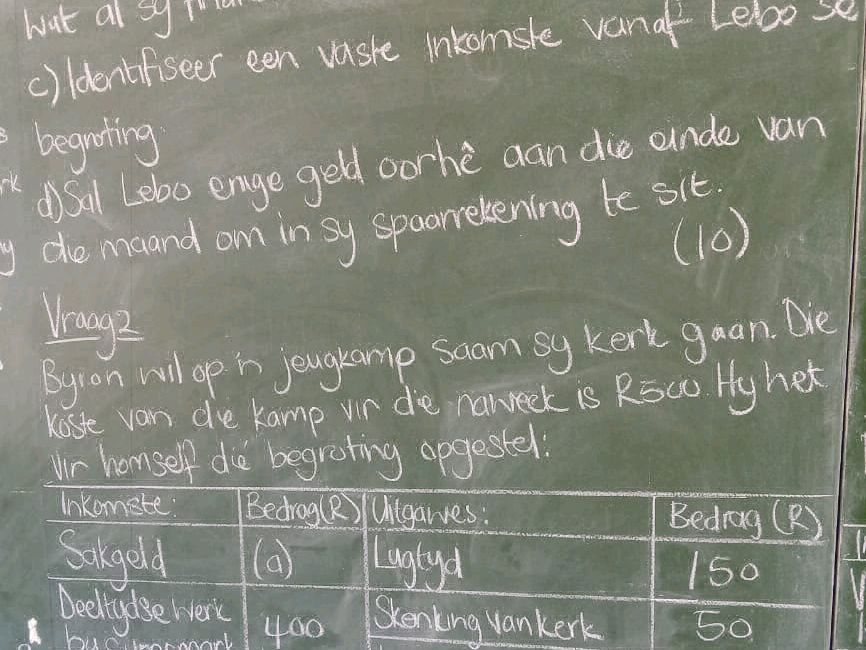 Wat al sy
c) Identifiseer een vaste Inkomste vanaf Lebo se
begroting.
d) Sal Lebo enige geld oorhê aan die einde van
die maand om in sy spaarrekening te sit.
(10)
Vraag 2
Byron wil op 'n jeugkamp saam sy kerk gaan. Die
koste van die kamp vir die naweek is R500. Hy het
vir homself dié begroting opgestel:
Inkomste: Bedrag(R) Uitgawes: Bedrag (R)
Sakgeld (a) Lugtyd 150
Deeltydse werk 400 Skenking van kerk 50
by